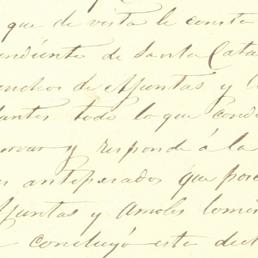 que de vista le conste
endiente de Santa Cata
anchos de Apuntas y A
tantes todo lo que condu
ovar y responde á la
s antepasados que pose
Apuntas y Amoles lomer
e concluyó este dict